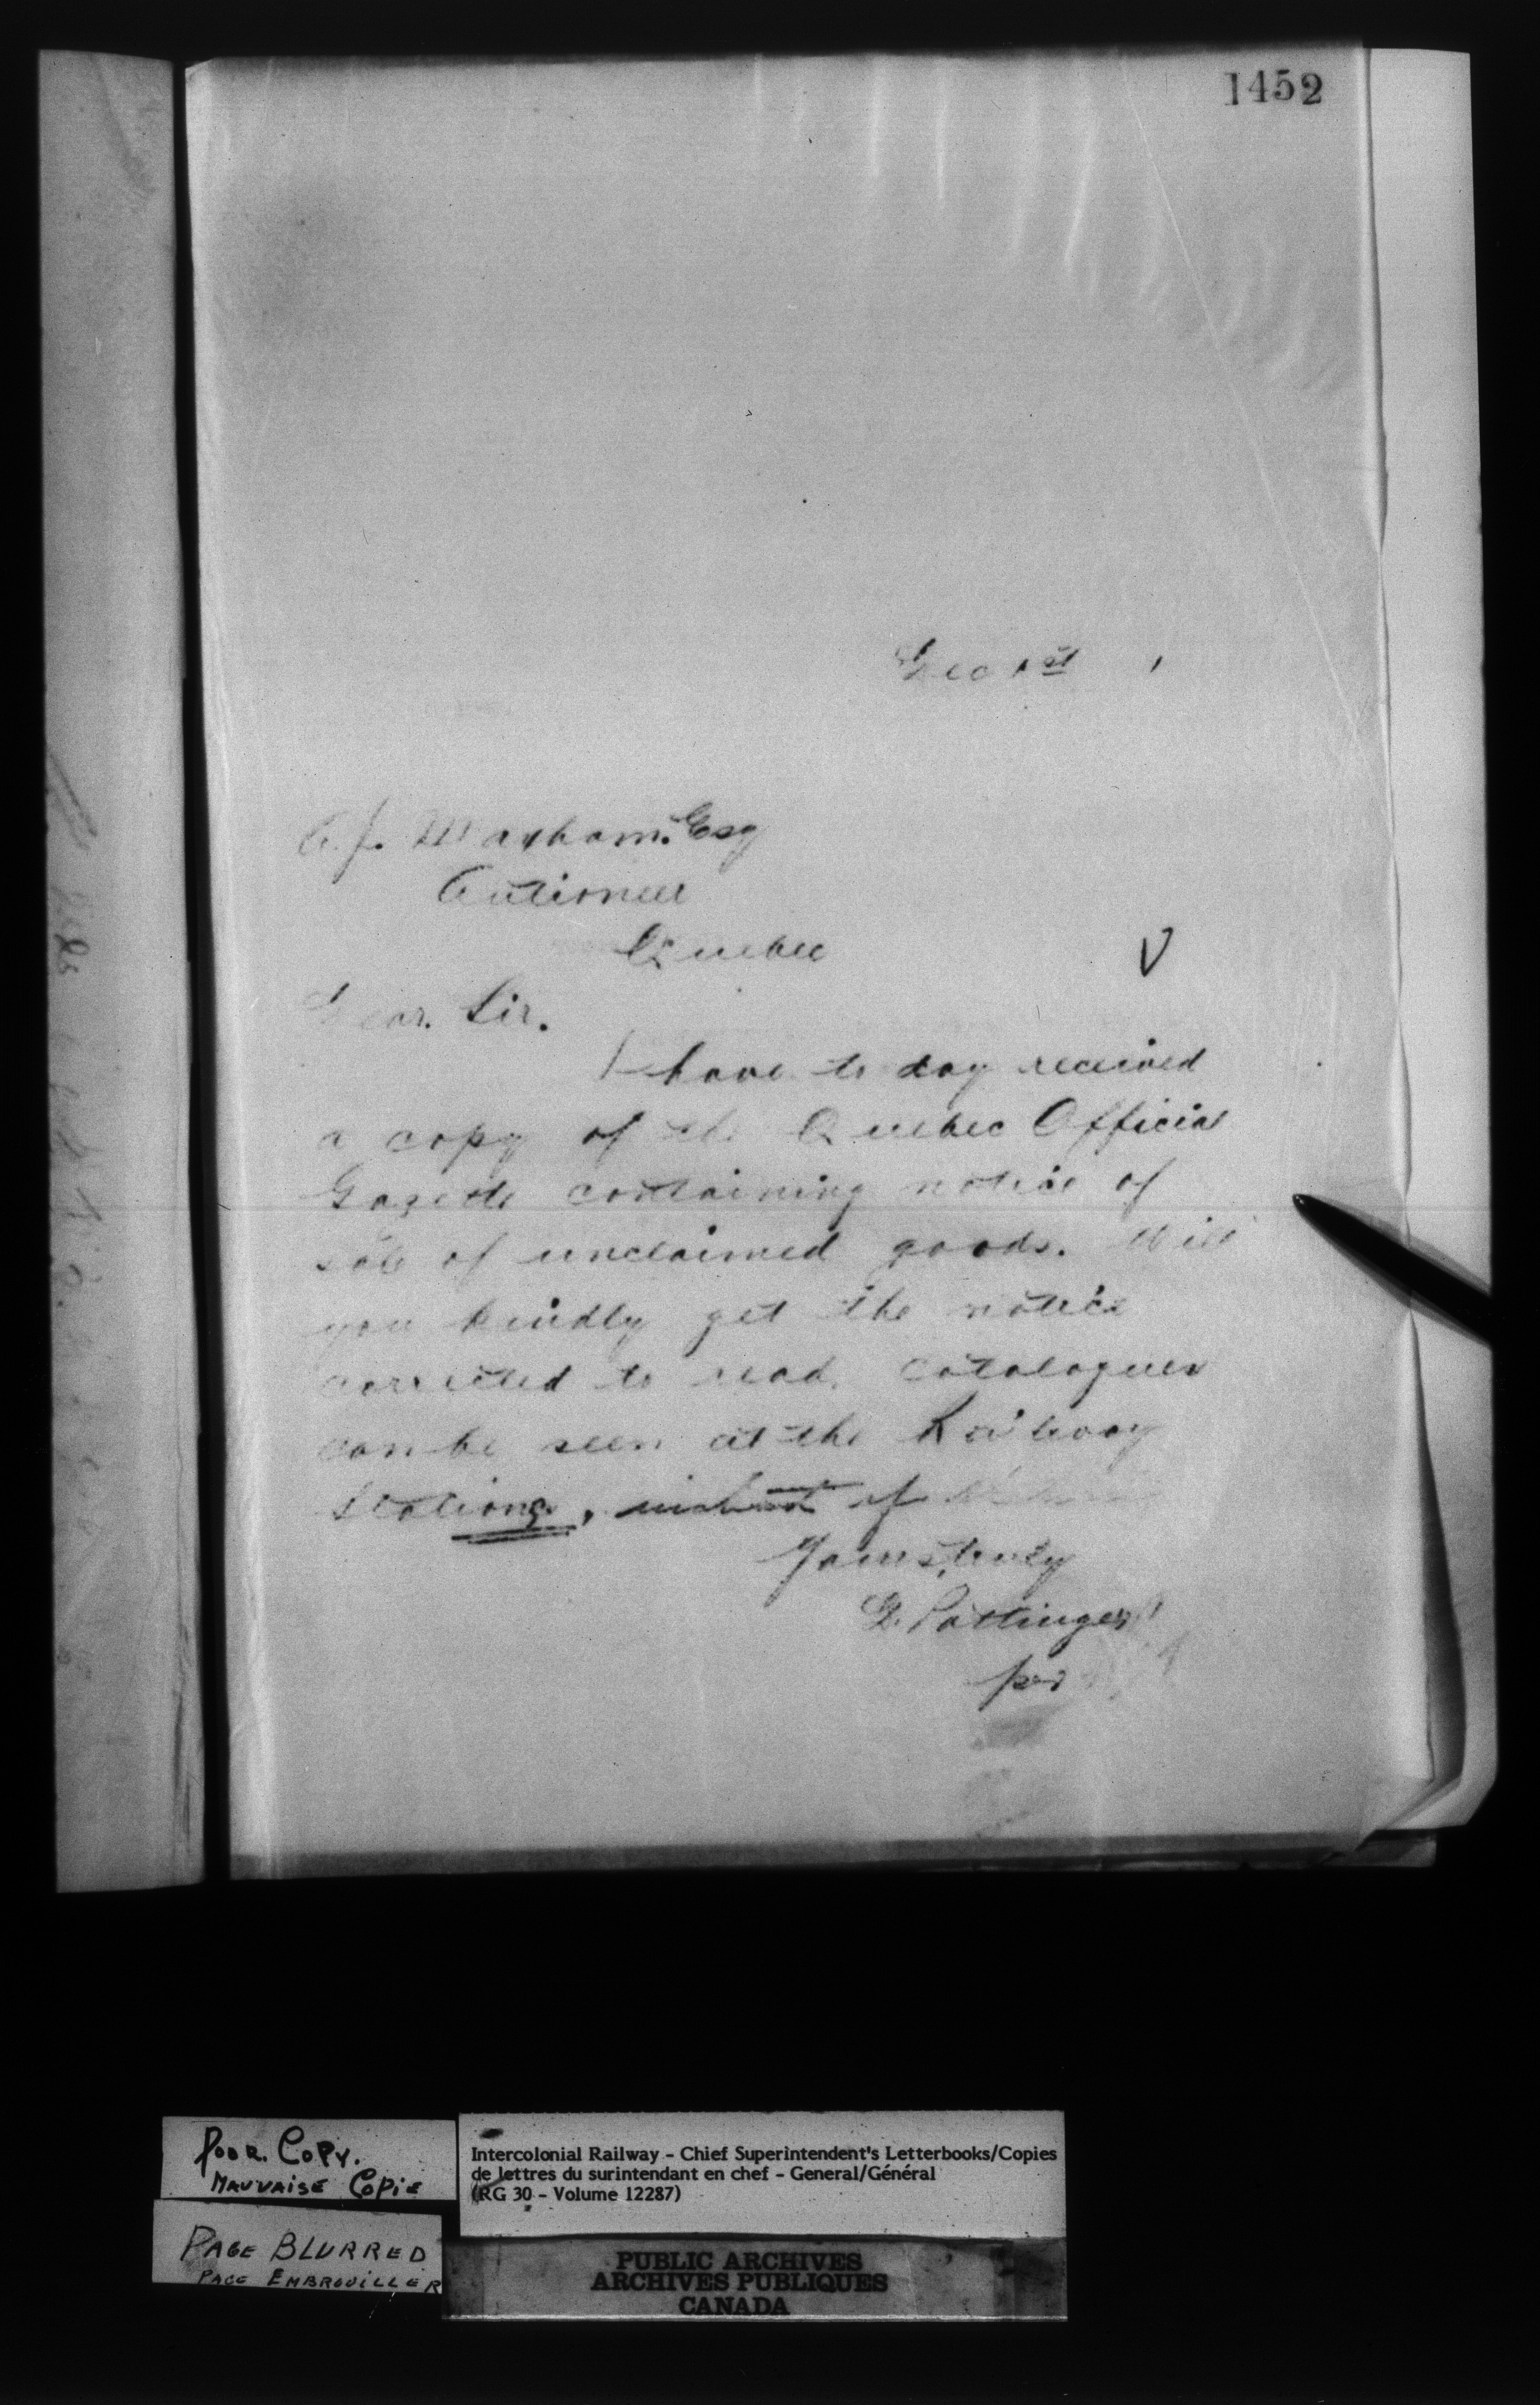 1452
Dec 1st
A. J. Maxham. Esq
Autioneer
Quebec
V
Dear. Sir.
I have to day received
a copy of the Quebec Official
Gazette containing notice of
sale of unclaimed goods. Will
you kindly get the notice
corrected to read, Catalogues
can be seen at the Railway
Stations, instead of
Yours truly
D. Pottinger
per
Poor. Copy.
Mauvaise Copie
Page Blurred
Page Embrouiller
Intercolonial Railway – Chief Superintendent's Letterbooks/Copies
de lettres du surintendant en chef – General/Général
(RG 30 – Volume 12287)
PUBLIC ARCHIVES
ARCHIVES PUBLIQUES
CANADA